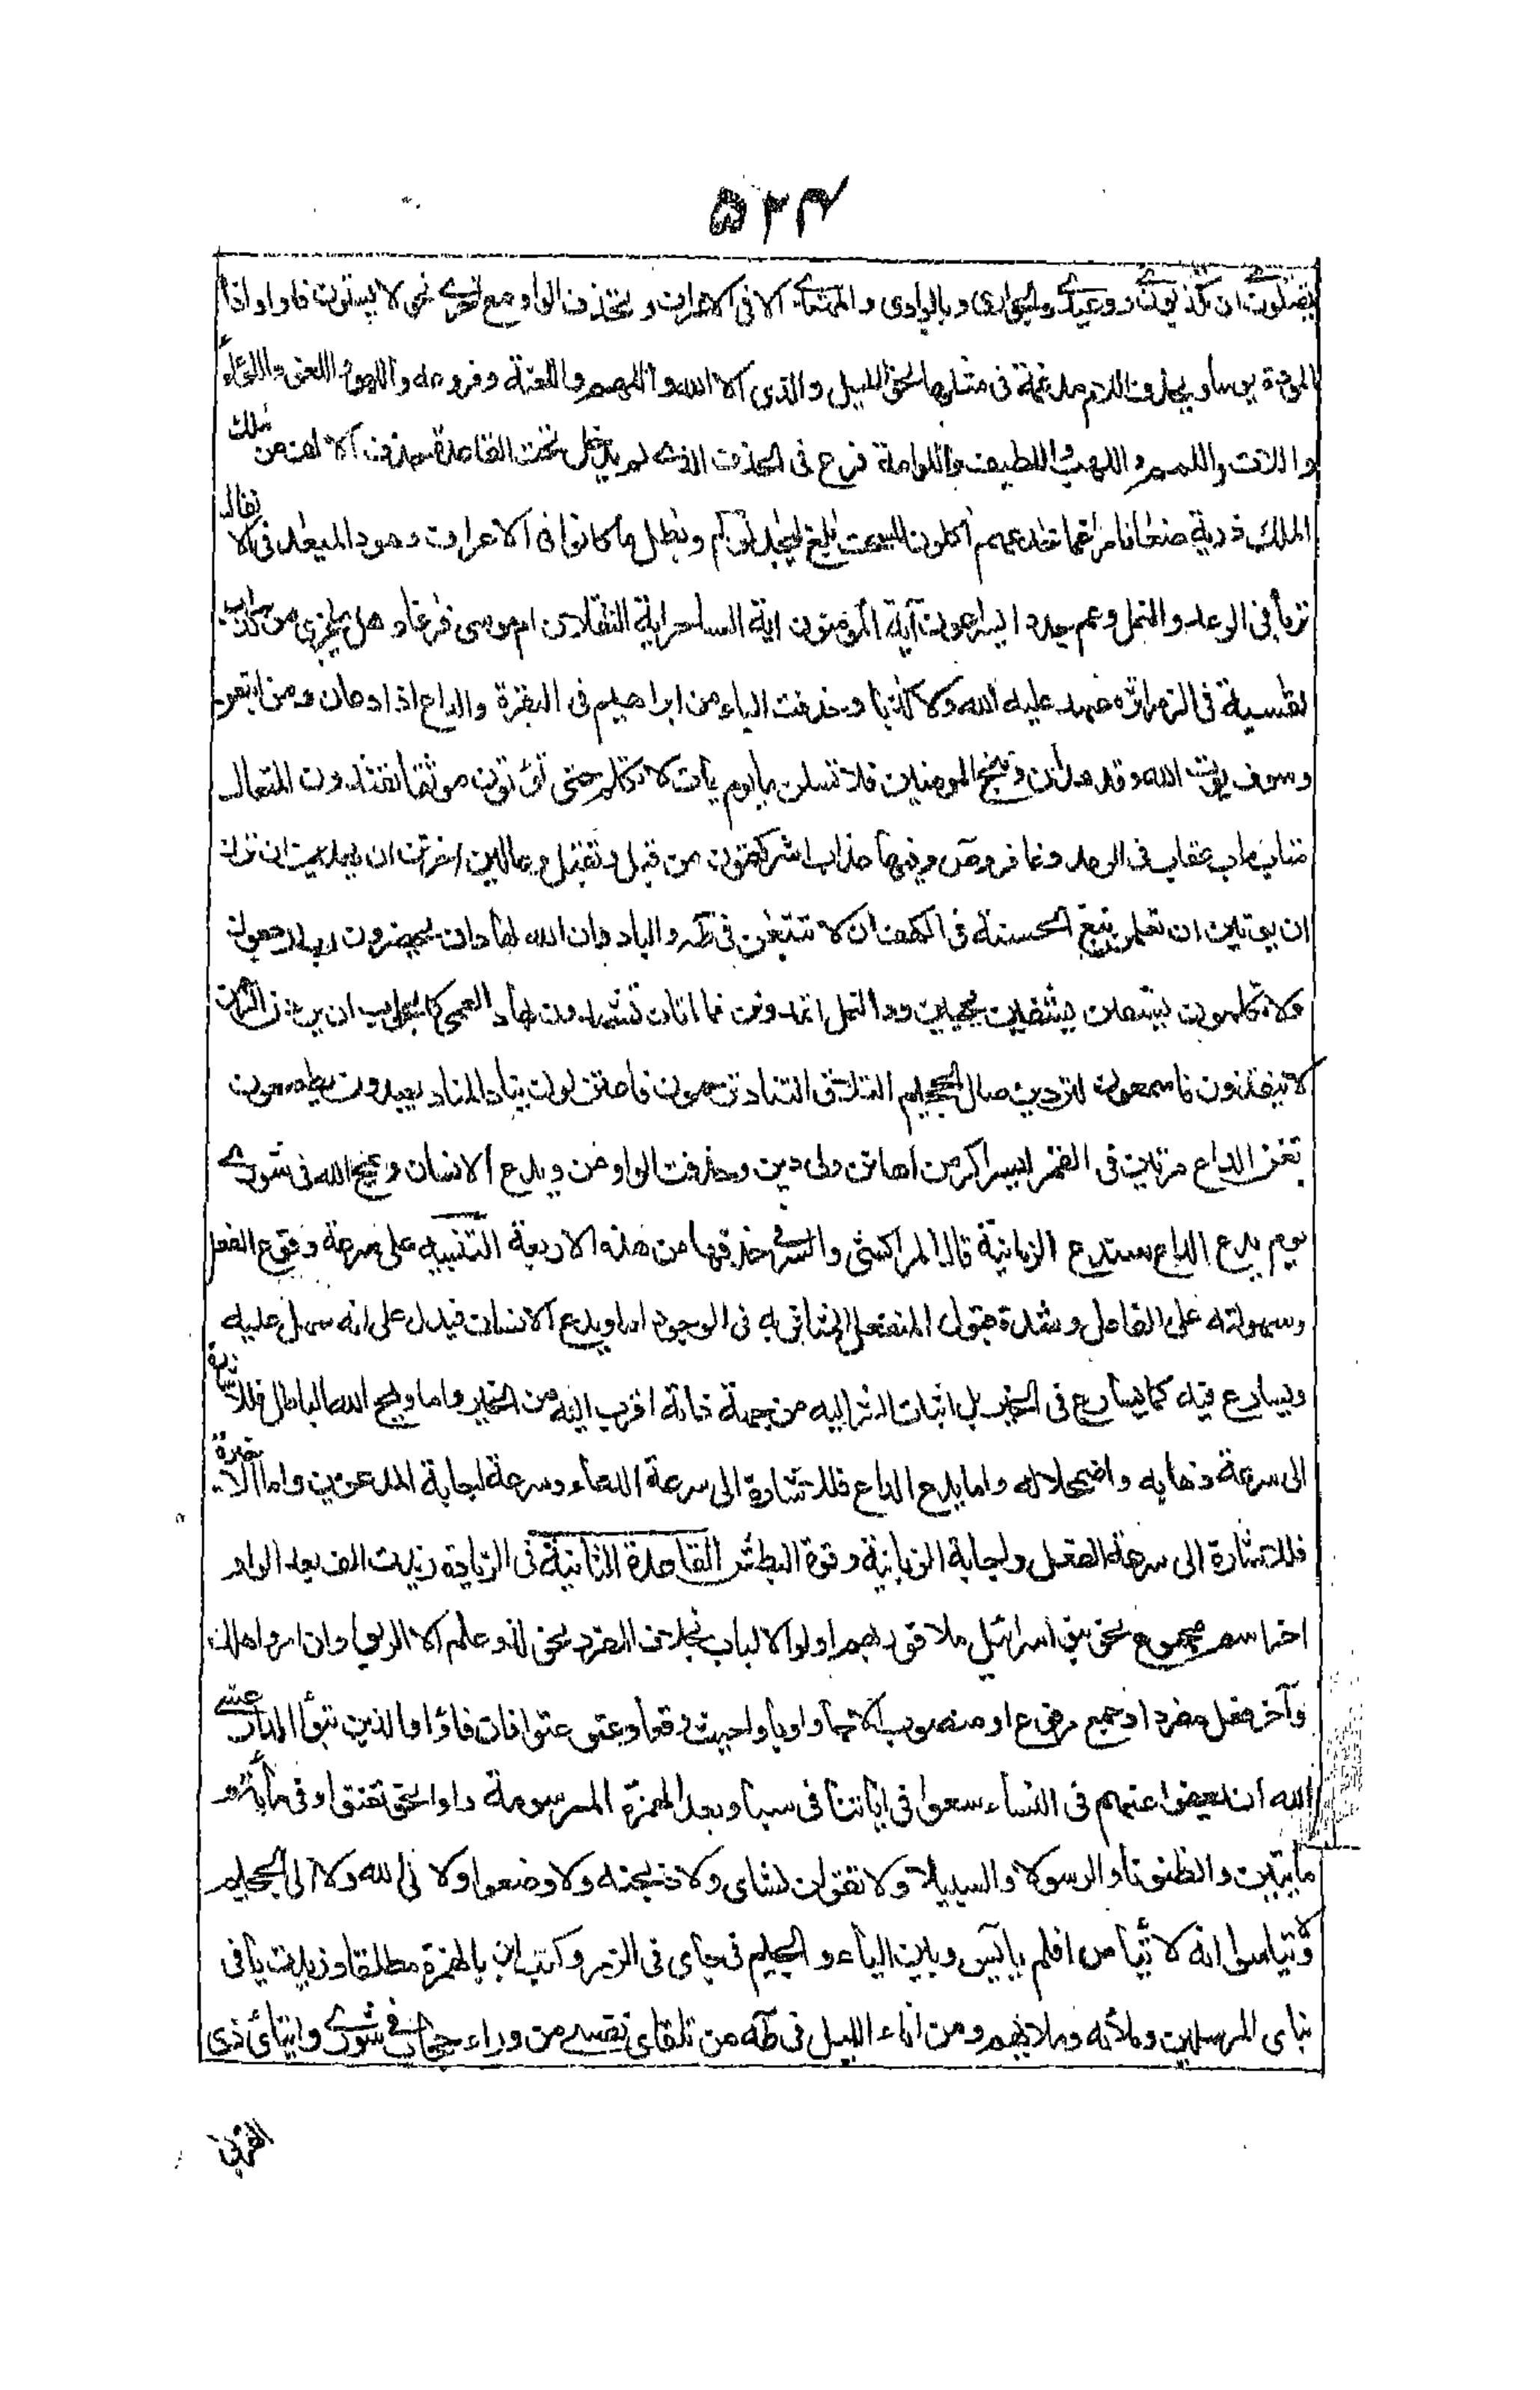 ۵۲۴
يقتلون ان يكذبون ووعيدى والجوارى وبالوادى والمهتدى الا فى الاعراف وتحذف الواو مع اخرى نحو لا يستون فاوا واذا
الموؤدة يوسا ويحذف اللام مدغمة فى مثلها نحو الليل والذى الا الله واللهم واللعنة وفروعه واللهو واللغو واللؤلؤ
واللات واللمم واللهب واللطيف واللوامة فرع فى الحذف الذى لم يدخل تحت القاعدة حذف الالف من ملك
الملك ذرية ضعافا مراغما خادعهم اكلون للسحت بلغ ليجدلوكم وبطل ما كانوا فى الاعراف وهود الميعد فى الانفال
تربا فى الرعد والنمل وعم جذذا يسرعون آية المؤمنون ايه الساحر ايه الثقلان ام موسى فرغا وهل يجزى من كذب
للقسية فى الزمر اثره عهد عليه الله ولا كذبا وحذفت الياء من ابراهيم فى البقرة والداع اذا دعان ومن اتبعن
وسوف يؤت الله وقد هدان وننج المومنين فلا تسلن ما يوم يات لا تكلم حتى تؤتون موثقا تفندون المتعال
متاب ماب عقاب فى الرعد وغافر وص وفيها عذاب اشركتمون من قبل وتقبل دعا لئن اخرتن ان يهدين ان ترن
ان يؤتين ان تعلمن نبغ الخمسة فى الكهف ان لا تتبعن فى طه والباد وان الله لهاد ان يحضرون رب ارجعون
ولا تكلمون يسقين يشفين يحيين واد النمل اتمدونن فما اتان تشهدون بهاد العمى كالجواب ان يردن الرحمن
لا ينقذون فاسمعون لتردين صال الجحيم التلاق التناد ترجمون فاعتزلون يناد المناد ليعبدون يطعمون
تغن الداع مرتين فى القمر يسر اكرمن اهانن ولى دين وحذفت الواو من ويدع الانسان ويمح الله فى شورى
يوم يدع الداع سندع الزبانية قال المراكشى والسر فى حذفها من هذه الاربعة التنبيه على سرعة وقوع الفعل
وسهولته على الفاعل وشدة قبول المنفعل المتاثر به فى الوجود اما ويدع الانسان فيدل على انه سهل عليه
ويسارع فيه كما يسارع فى الخير بل اثبات الشر اليه من جهة ذاته اقرب اليه من الخير واما ويمح الله الباطل فللاشارة
الى سرعة ذهابه واضمحلاله واما يدع الداع فللاشارة الى سرعة الدعاء وسرعة اجابة المدعوين واما الاخيرة
فللاشارة الى سرعة الفعل واجابة الزبانية وقوة البطش القاعدة الثانية فى الزيادة زيدت الف بعد الواو
اخر اسم مجموع نحو بنوا اسرائيل ملاقوا ربهم اولوا الالباب بخلاف المفرد نحو لذو علم الا الربوا وان امرؤا هلك
وآخر فعل مفرد او جمع مرفوع او منصوب الا جاؤ او باؤ حيث وقعا وعتو عتوا فان فاؤ او الذين تبوؤ الدار عسى
الله ان يعفو عنهم فى النساء سعو فى اياتنا فى سبا وبعد الهمزة المرسومة واوا نحو تفتؤا وفى مائة و
مائتين والظنونا والرسولا والسبيلا ولا تقولن لشاى ولا اذبحنه ولا وضعوا ولا الى الله ولا الى الجحيم
ولا تياسوا انه لا ياياس افلم ياييس وبين الياء والجيم فى جاى فى الزمر وكتب ابن بالهمزة مطلقا وزيدت يا فى
نباى المرسلين وملائه وملائهم ومن اناء الليل فى طه من تلقاى نفسى من وراء حجاب فى شورى وايتائ ذى
القربى